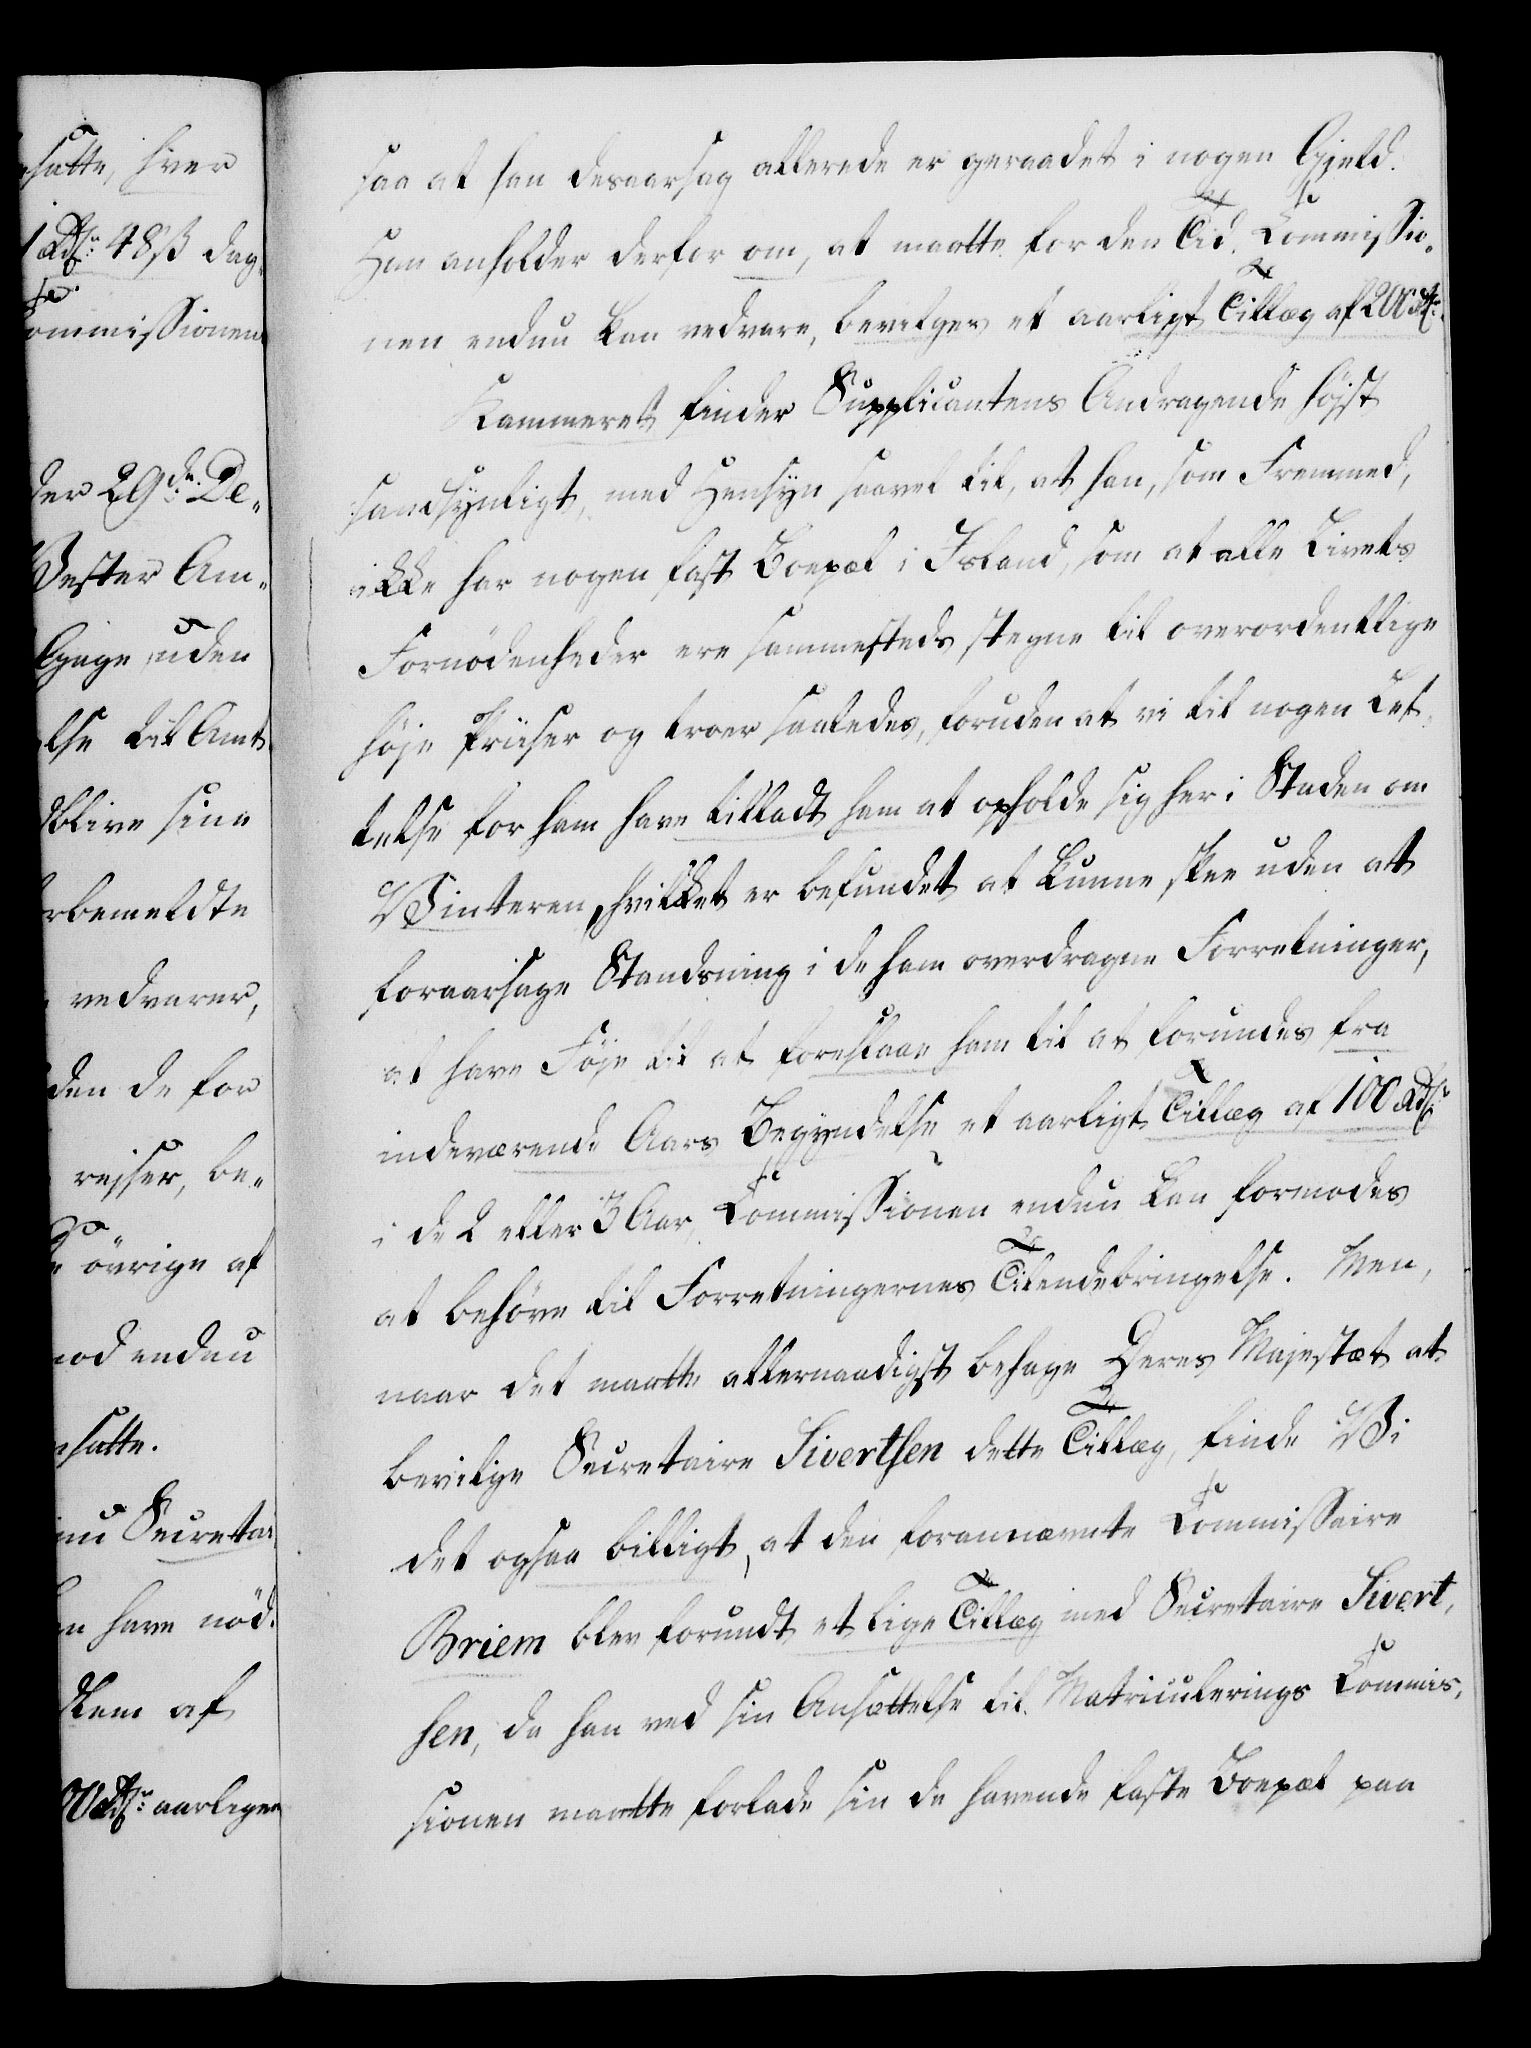 satte, hver
1 Rd: 48 ß dag-
Commissionens
der 29de De-
Vester Am-
Gage uden
else til Amt-
blive sine
rbemeldte
vedvarer,
den de for
rejser, be-
övrige af
mod endnu
satte.
nu Secretai-
n have nöd-
dlem af
Rd: aarligen
saa at han desaarsag allerede er geraadet i nogen Gjeld.
Han anholder derfor om, at maatte for den Tid, Commissio-
nen endnu kan vedvare, bevilges et aarligt Tillæg af 200 Rd:
Kammeret finder Supplicantens Andragende höjst
sandsynligt, med Hensyn saavel til, at han, som Fremmed,
ikke har nogen fast Boepæl i Island, som at alle Livets
Fornödenheder ere sammesteds stegne til overordentlige
höje Priiser og troer saaledes, foruden at vi til nogen Let-
telse for ham have tilladt ham at opholde sig her i Staden om
Vinteren, hvilket er befundet at kunne skee uden at
foraarsage Standsning i de ham overdragne Forretninger,
at have Föje til at foreslaae ham til at forundes fra
indeværende Aars Begyndelse et aarligt Tillæg af 100 Rd:
i de 2 eller 3 Aar, Commissionen endnu kan formodes
at behöve til Forretningernes Tilendebringelse. Men,
naar det maatte allernaadigst behage Deres Majestæt at
bevilge Secretaire Sivertsen dette Tillæg, finde Vi
det ogsaa billigt, at den forannævnte Commissaire
Briem blev forundt et lige Tillæg med Secretaire Sivert-
sen, da han ved sin Ansættelse til Matriculerings Commis-
sionen maatte forlade sin da havende faste Boepæl paa